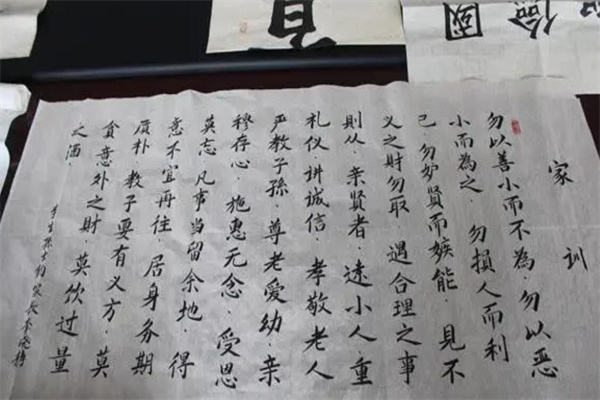 國
儉
家训
勿以善小而不為·勿以恶
小而為之·勿損人而利
己·勿妒賢而嫉能·見不
义之财勿取·遇合理之事
則从·亲賢者·遠小人重
礼仪·讲诚信·孝敬老人
严教子孫·尊老爱幼·亲
穆存心·施惠无念·受恩
莫忘·凡事当留余地·得
意不宜再往·居身务期
质朴·教子要有义方·莫
貪意外之财·莫饮过量
之酒·
学生孫士 家长李